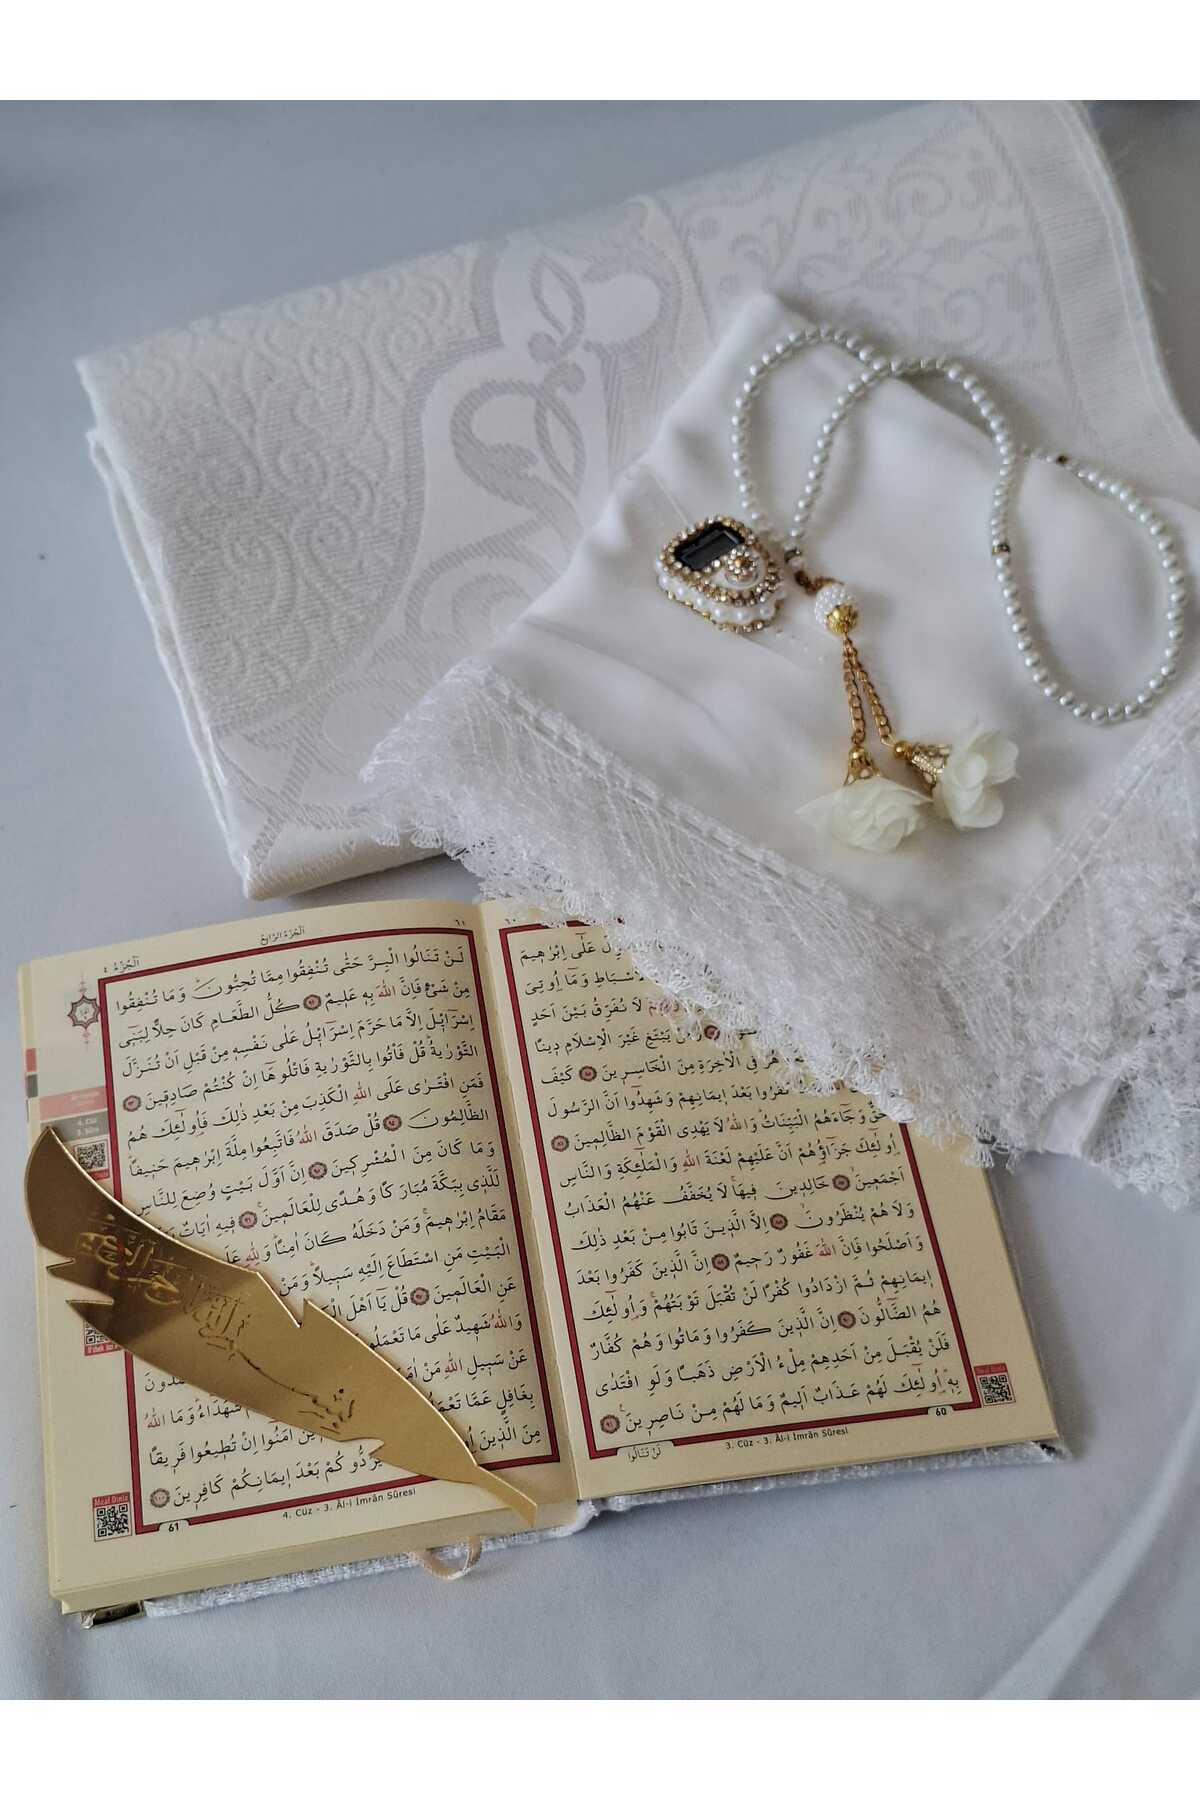 ٦٠
عَلٰٓى اِبْرٰه۪يمَ
الْاَسْبَاطِ وَمَٓا اُو۫تِيَ
لَا نُفَرِّقُ بَيْنَ اَحَدٍ
يَبْتَغِ غَيْرَ الْاِسْلَامِ د۪ينًا
فِي الْاٰخِرَةِ مِنَ الْخَاسِر۪ينَ ﴿٨٥﴾ كَيْفَ
كَفَرُوا بَعْدَ ا۪يمَانِهِمْ وَشَهِدُٓوا اَنَّ الرَّسُولَ
حَقٌّ وَجَٓاءَهُمُ الْبَيِّنَاتُۜ وَاللّٰهُ لَا يَهْدِي الْقَوْمَ الظَّالِم۪ينَ ﴿٨٦﴾
اُو۬لٰٓئِكَ جَزَٓاؤُ۬هُمْ اَنَّ عَلَيْهِمْ لَعْنَةَ اللّٰهِ وَالْمَلٰٓئِكَةِ وَالنَّاسِ
اَجْمَع۪ينَۙ ﴿٨٧﴾ خَالِد۪ينَ ف۪يهَاۚ لَا يُخَفَّفُ عَنْهُمُ الْعَذَابُ
وَلَا هُمْ يُنْظَرُونَۙ ﴿٨٨﴾ اِلَّا الَّذ۪ينَ تَابُوا مِنْ بَعْدِ ذٰلِكَ
وَاَصْلَحُوا فَاِنَّ اللّٰهَ غَفُورٌ رَح۪يمٌ ﴿٨٩﴾ اِنَّ الَّذ۪ينَ كَفَرُوا بَعْدَ
ا۪يمَانِهِمْ ثُمَّ ازْدَادُوا كُفْرًا لَنْ تُقْبَلَ تَوْبَتُهُمْۚ وَاُو۬لٰٓئِكَ
هُمُ الضَّٓالُّونَ ﴿٩٠﴾ اِنَّ الَّذ۪ينَ كَفَرُوا وَمَاتُوا وَهُمْ كُفَّارٌ
فَلَنْ يُقْبَلَ مِنْ اَحَدِهِمْ مِلْءُ الْاَرْضِ ذَهَبًا وَلَوِ افْتَدٰى
بِه۪ۜ اُو۬لٰٓئِكَ لَهُمْ عَذَابٌ اَل۪يمٌ وَمَا لَهُمْ مِنْ نَاصِر۪ينَ۟ ﴿٩١﴾
60
لَنْ تَنَالُوا
3. Cüz - 3. Âl-i İmrân Sûresi
Meal Dinle
٦١
اَلْجُزْءُ الرَّابِعُ
اَلْجُزْءُ ٤
لَنْ تَنَالُوا الْبِرَّ حَتّٰى تُنْفِقُوا مِمَّا تُحِبُّونَۜ وَمَا تُنْفِقُوا
مِنْ شَيْءٍ فَاِنَّ اللّٰهَ بِه۪ عَل۪يمٌ ﴿٩٢﴾ كُلُّ الطَّعَامِ كَانَ حِلًّا لِبَن۪ٓي
اِسْرَٓائ۪لَ اِلَّا مَا حَرَّمَ اِسْرَٓائ۪لُ عَلٰى نَفْسِه۪ مِنْ قَبْلِ اَنْ تُنَزَّلَ
التَّوْرٰيةُۜ قُلْ فَأْتُوا بِالتَّوْرٰيةِ فَاتْلُوهَٓا اِنْ كُنْتُمْ صَادِق۪ينَ ﴿٩٣﴾
فَمَنِ افْتَرٰى عَلَى اللّٰهِ الْكَذِبَ مِنْ بَعْدِ ذٰلِكَ فَاُو۬لٰٓئِكَ هُمُ
الظَّالِمُونَ ﴿٩٤﴾ قُلْ صَدَقَ اللّٰهُ فَاتَّبِعُوا مِلَّةَ اِبْرٰه۪يمَ حَن۪يفًاۜ
وَمَا كَانَ مِنَ الْمُشْرِك۪ينَ ﴿٩٥﴾ اِنَّ اَوَّلَ بَيْتٍ وُضِعَ لِلنَّاسِ
لَلَّذ۪ي بِبَكَّةَ مُبَارَكًا وَهُدًى لِلْعَالَم۪ينَۚ ﴿٩٦﴾ ف۪يهِ اٰيَاتٌ
مَقَامُ اِبْرٰه۪يمَۚ وَمَنْ دَخَلَهُ كَانَ اٰمِنًاۜ وَلِلّٰهِ
الْبَيْتِ مَنِ اسْتَطَاعَ اِلَيْهِ سَب۪يلًاۜ وَمَنْ
عَنِ الْعَالَم۪ينَ ﴿٩٧﴾ قُلْ يَٓا اَهْلَ
وَاللّٰهُ شَه۪يدٌ عَلٰى مَا تَعْمَلُونَ
عَنْ سَب۪يلِ اللّٰهِ مَنْ
شُهَدَٓاءُۜ وَمَا اللّٰهُ
بِغَافِلٍ عَمَّا
اٰمَنُٓوا اِنْ تُط۪يعُوا فَر۪يقًا
مِنَ الَّذ۪ينَ
يَرُدُّوكُمْ بَعْدَ ا۪يمَانِكُمْ كَافِر۪ينَ ﴿١٠٠﴾
61
4. Cüz - 3. Âl-i İmrân Sûresi
Meal Dinle